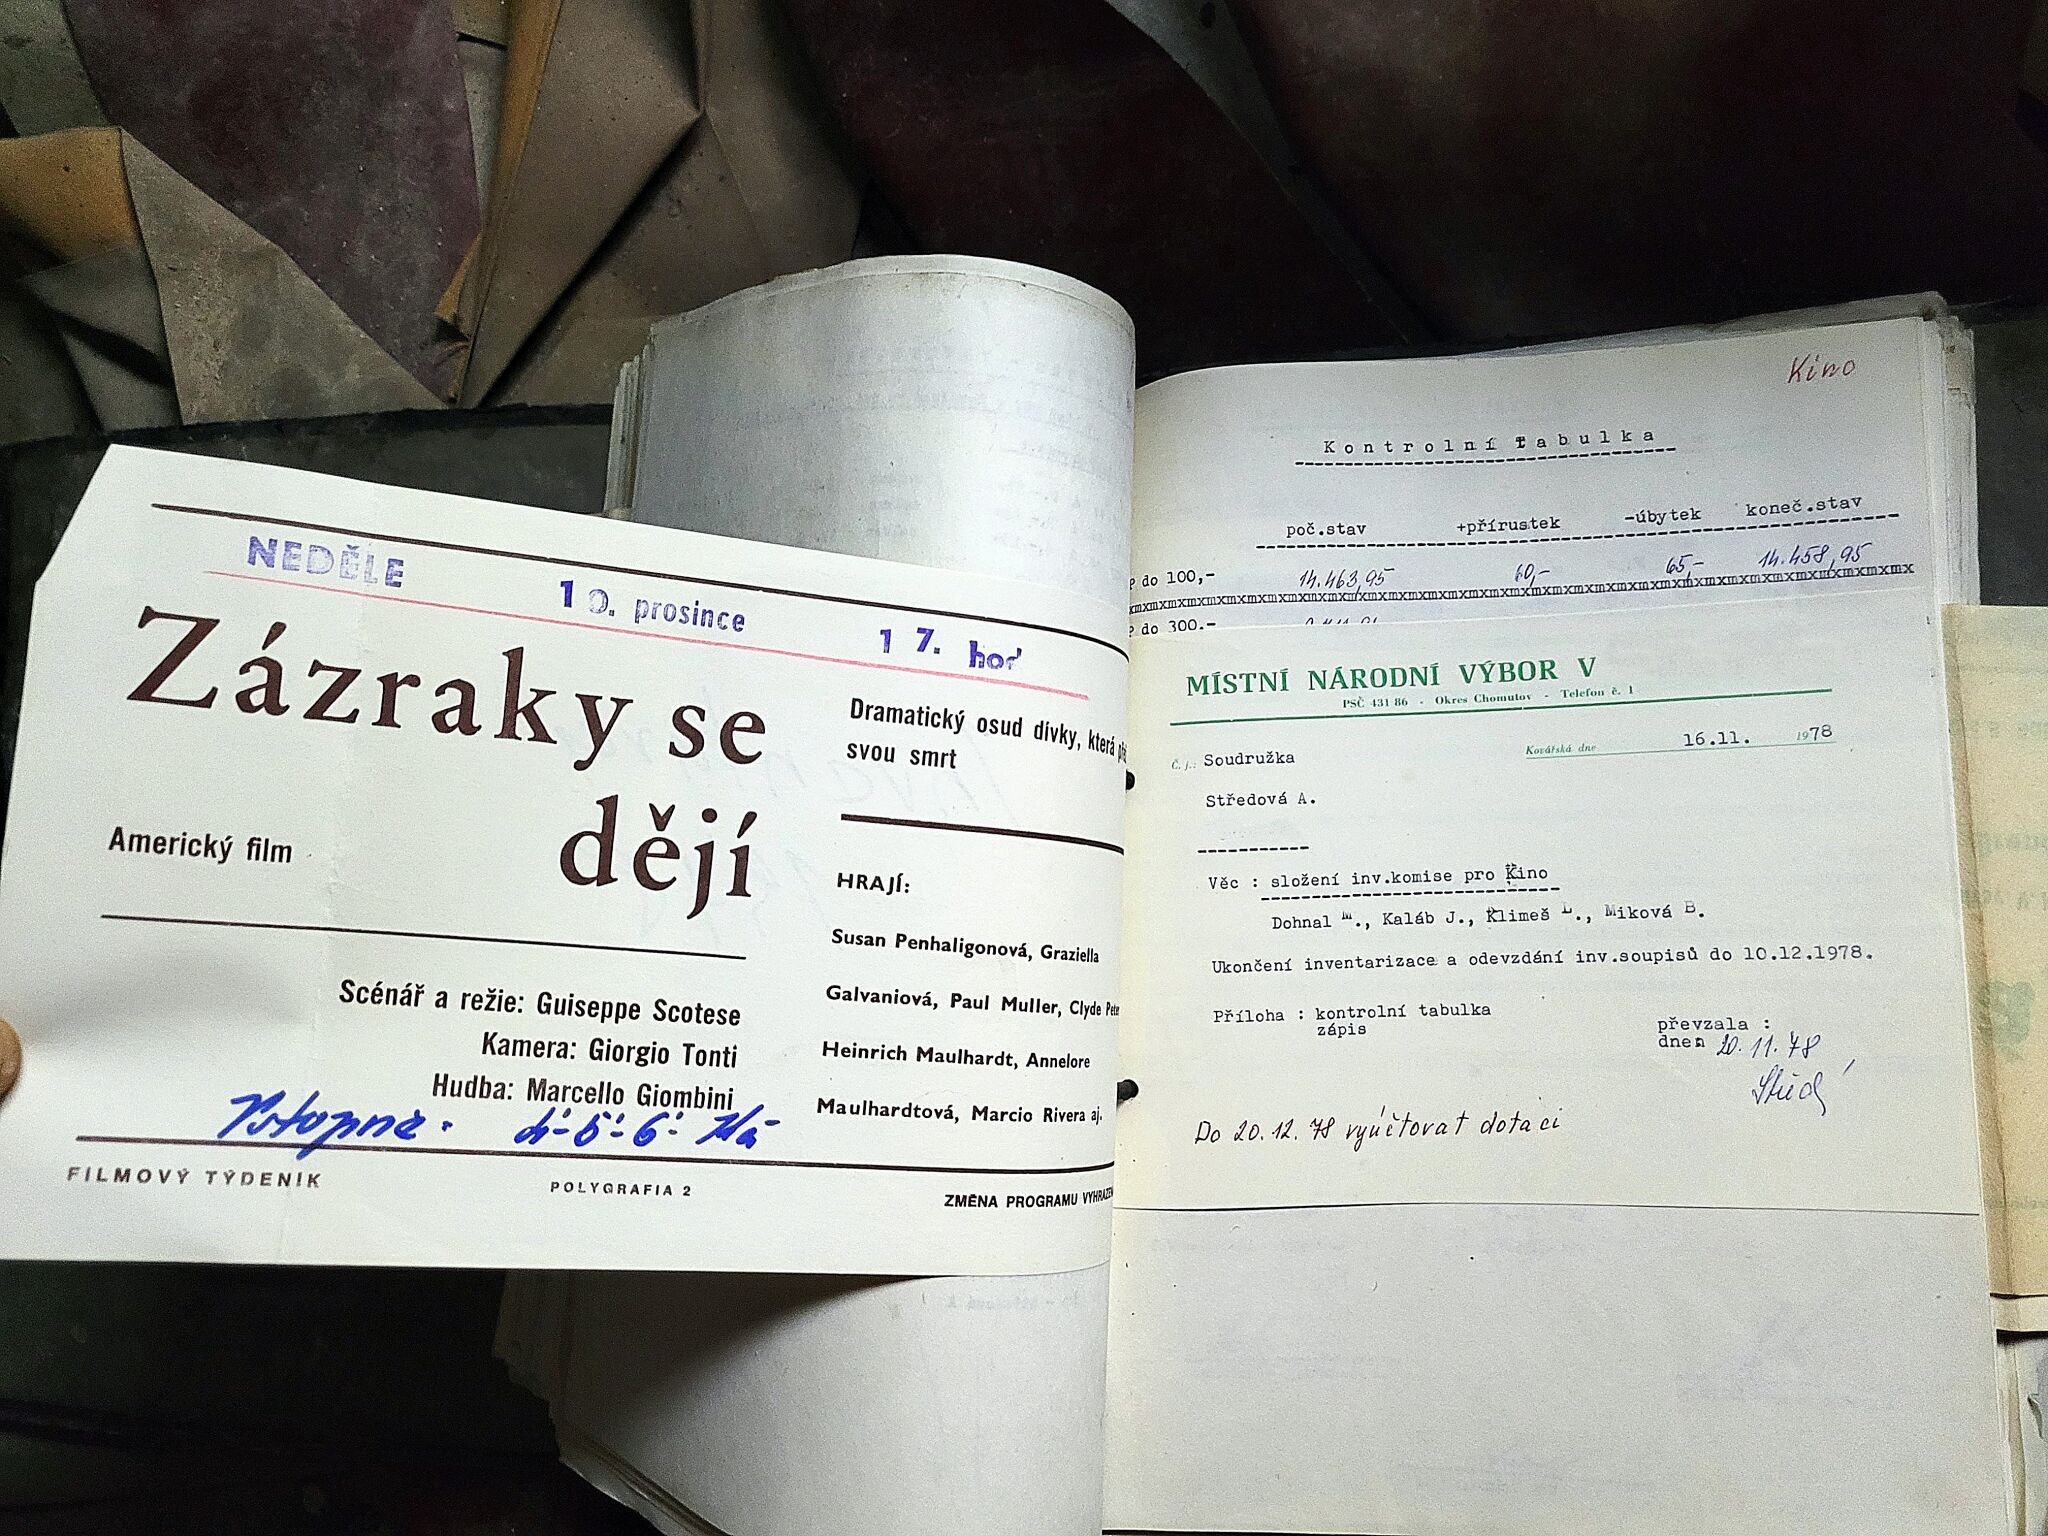 NEDĚLE 10. prosince 17. hod
Zázraky se
dějí
Americký film
Scénář a režie: Guiseppe Scotese
Kamera: Giorgio Tonti
Hudba: Marcello Giombini
Vstopne. 4.- 5.- 6.- Kčs
Dramatický osud dívky, která
svou smrt
HRAJÍ:
Susan Penhaligonová, Graziella
Galvaniová, Paul Muller, Clyde Peter
Heinrich Maulhardt, Annelore
Maulhardtová, Marcio Rivera aj.
FILMOVÝ TÝDENIK POLYGRAFIA 2 ZMĚNA PROGRAMU VYHRAZEN
Kino
Kontrolní Tabulka
poč.stav +přírustek -úbytek koneč.stav
P do 100,- 14.463,95 60,- 65,- 14.458,95
xmxmxmxmxmxmxmxmxmxmxmxmxmxmxmxmxmxmxmxmxmxmxmxmxmxmxmx
P do 300.-
MÍSTNÍ NÁRODNÍ VÝBOR V
PSČ 431 86 - Okres Chomutov - Telefon č. 1
Kovářská dne 16.11. 1978
Č. j.: Soudružka
Středová A.
Věc : složení inv.komise pro Kino
Dohnal M., Kaláb J., Klimeš L., Miková B.
Ukončení inventarizace a odevzdání inv.soupisů do 10.12.1978.
Příloha : kontrolní tabulka
zápis
převzala :
dnen 20.11.78
Střed
Do 20.12.78 vyúčtovat dotaci